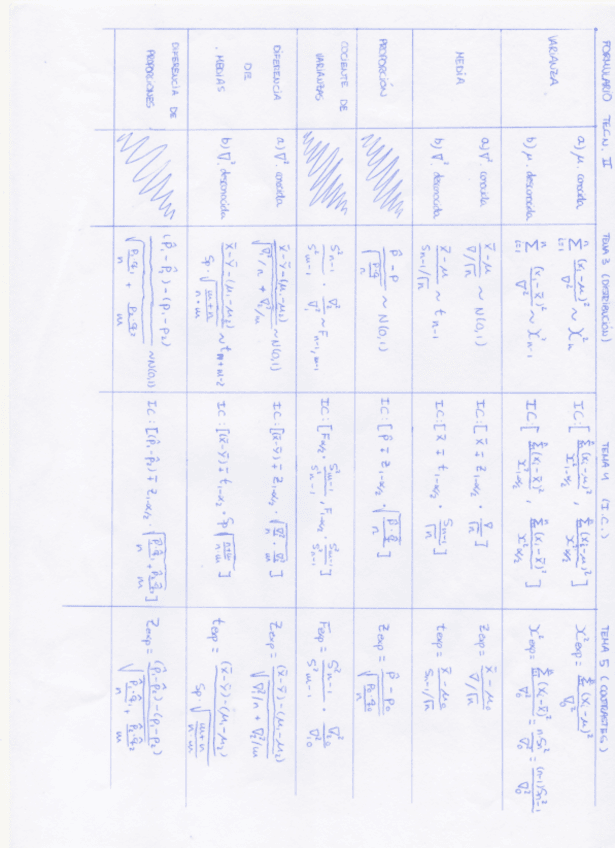 FORMULARIO TECN. II
TEMA 3 (DISTRIBUCIÓN)
TEMA 4 (I.C.)
TEMA 5 (CONTRASTES)
VARIANZA
a) μ. conocida
Σ(i=1..n) (xi-μ)²/∇² ~ χ²n
IC: [Σ(xi-μ)²/χ²1-α/2 , Σ(xi-μ)²/χ²α/2]
χ²exp = Σ(xi-μ)²/∇²0
b) μ. desconocida
Σ(i=1..n) (xi-x̄)²/∇² ~ χ²n-1
IC [Σ(xi-x̄)²/χ²1-α/2 , Σ(xi-x̄)²/χ²α/2]
χ²exp = Σ(xi-x̄)²/∇²0 = nS²/∇²0 = (n-1)S²n-1/∇²0
MEDIA
a) ∇² conocida
x̄-μ/∇/√n ~ N(0,1)
IC: [x̄ ∓ z1-α/2 · ∇/√n]
zexp = x̄-μ0/∇/√n
b) ∇² desconocida
x̄-μ/Sn-1/√n ~ tn-1
IC: [x̄ ∓ t1-α/2 · Sn-1/√n]
texp = x̄-μ0/Sn-1/√n
PROPORCIÓN
p̂-p/√(p·q/n) ~ N(0,1)
IC: [p̂ ∓ z1-α/2 · √(p̂·q̂/n)]
zexp = p̂-p0/√(p0·q0/n)
COCIENTE DE
VARIANZAS
S²n-1/S²m-1 · ∇²2/∇²1 ~ Fn-1, m-1
IC: [Fα/2 · S²m-1/S²n-1 , F1-α/2 · S²m-1/S²n-1]
Fexp = S²n-1/S²m-1
DIFERENCIA
DE
MEDIAS
a) ∇² conocida
x̄-ȳ-(μ1-μ2)/√(∇²1/n + ∇²2/m) ~ N(0,1)
IC: [(x̄-ȳ) ∓ z1-α/2 · √(∇²1/n · ∇²2/m)]
zexp = (x̄-ȳ)-(μ1-μ2)/√(∇²1/n + ∇²2/m)
b) ∇² desconocida
x̄-ȳ-(μ1-μ2)/Sp·√(m+n/n·m) ~ tn+m-2
IC: [(x̄-ȳ) ∓ t1-α/2 · Sp √(n+m/n·m)]
texp = (x̄-ȳ)-(μ1-μ2)/Sp √(m+n/n·m)
DIFERENCIA DE
PROPORCIONES
(p̂1-p̂2)-(p1-p2)/√(p1·q1/n + p2·q2/m) ~ N(0,1)
IC: [(p̂1-p̂2) ∓ z1-α/2 · √(p̂1·q̂1/n + p̂2·q̂2/m)]
zexp = (p̂1-p̂2)-(p1-p2)/√(p̂1·q̂1/n + p̂2·q̂2/m)